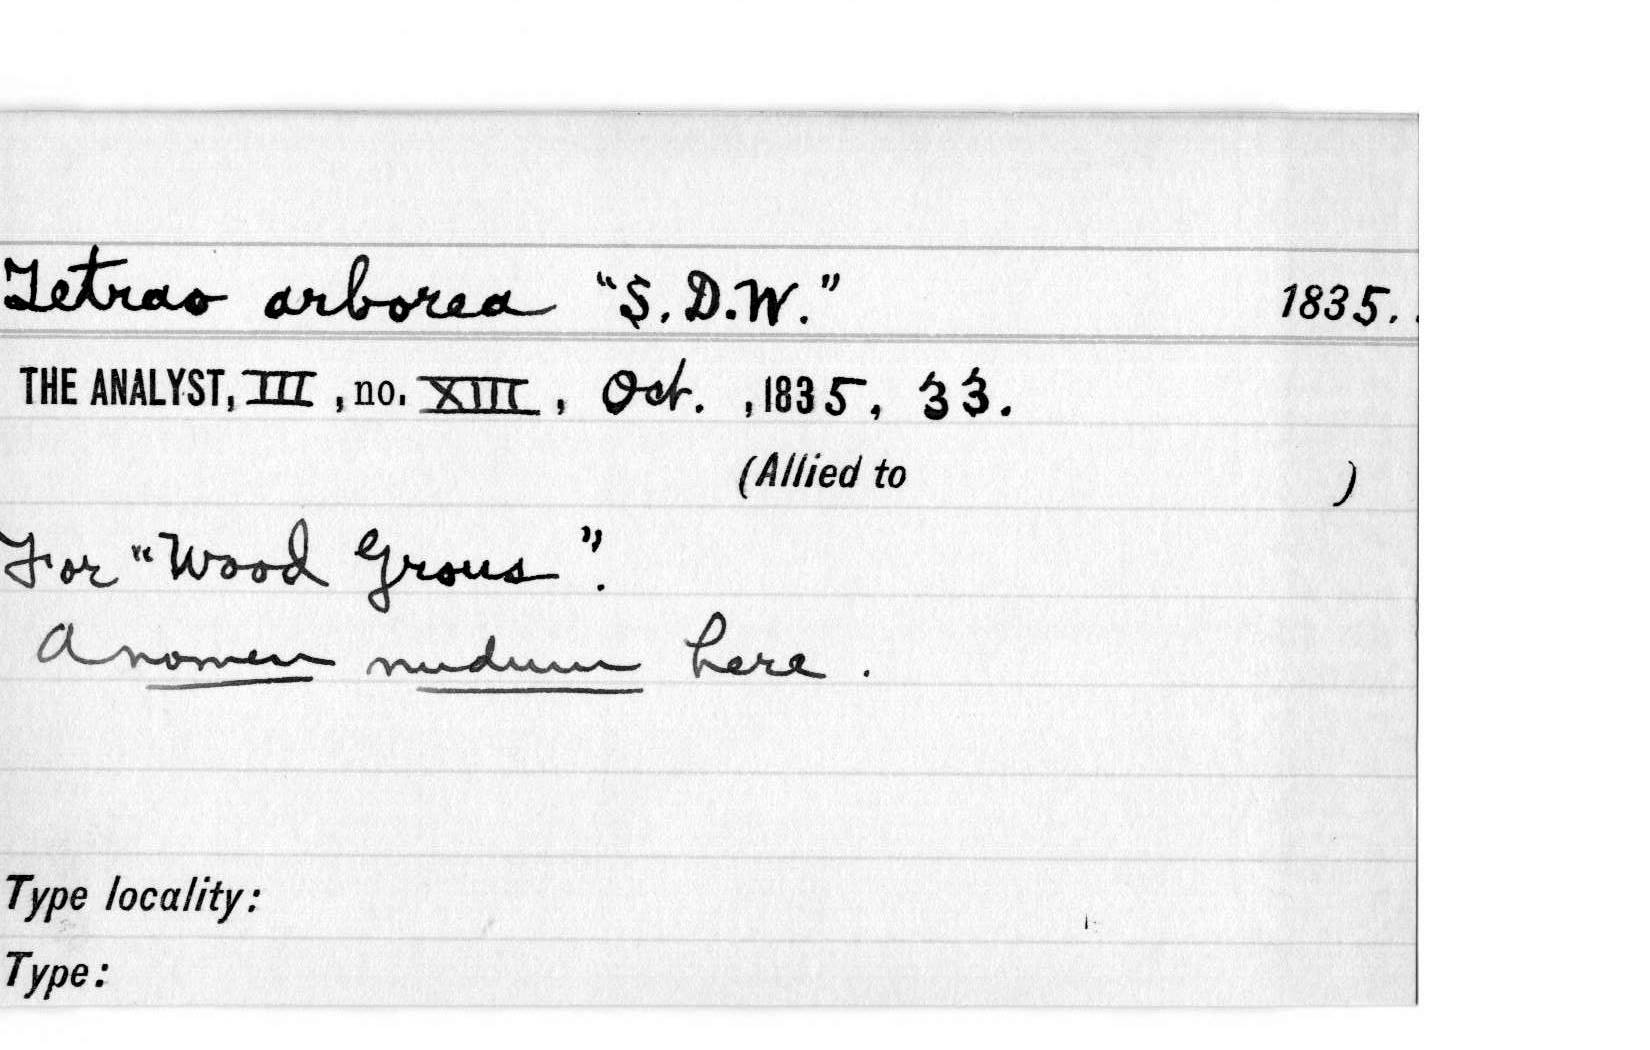 Tetrao arborea "S.D.W." 1835.
THE ANALYST, III, no. XIII, Oct. , 1835, 33.
(Allied to )
For "Wood Grous".
A nomen nudum here.
Type locality:
Type: